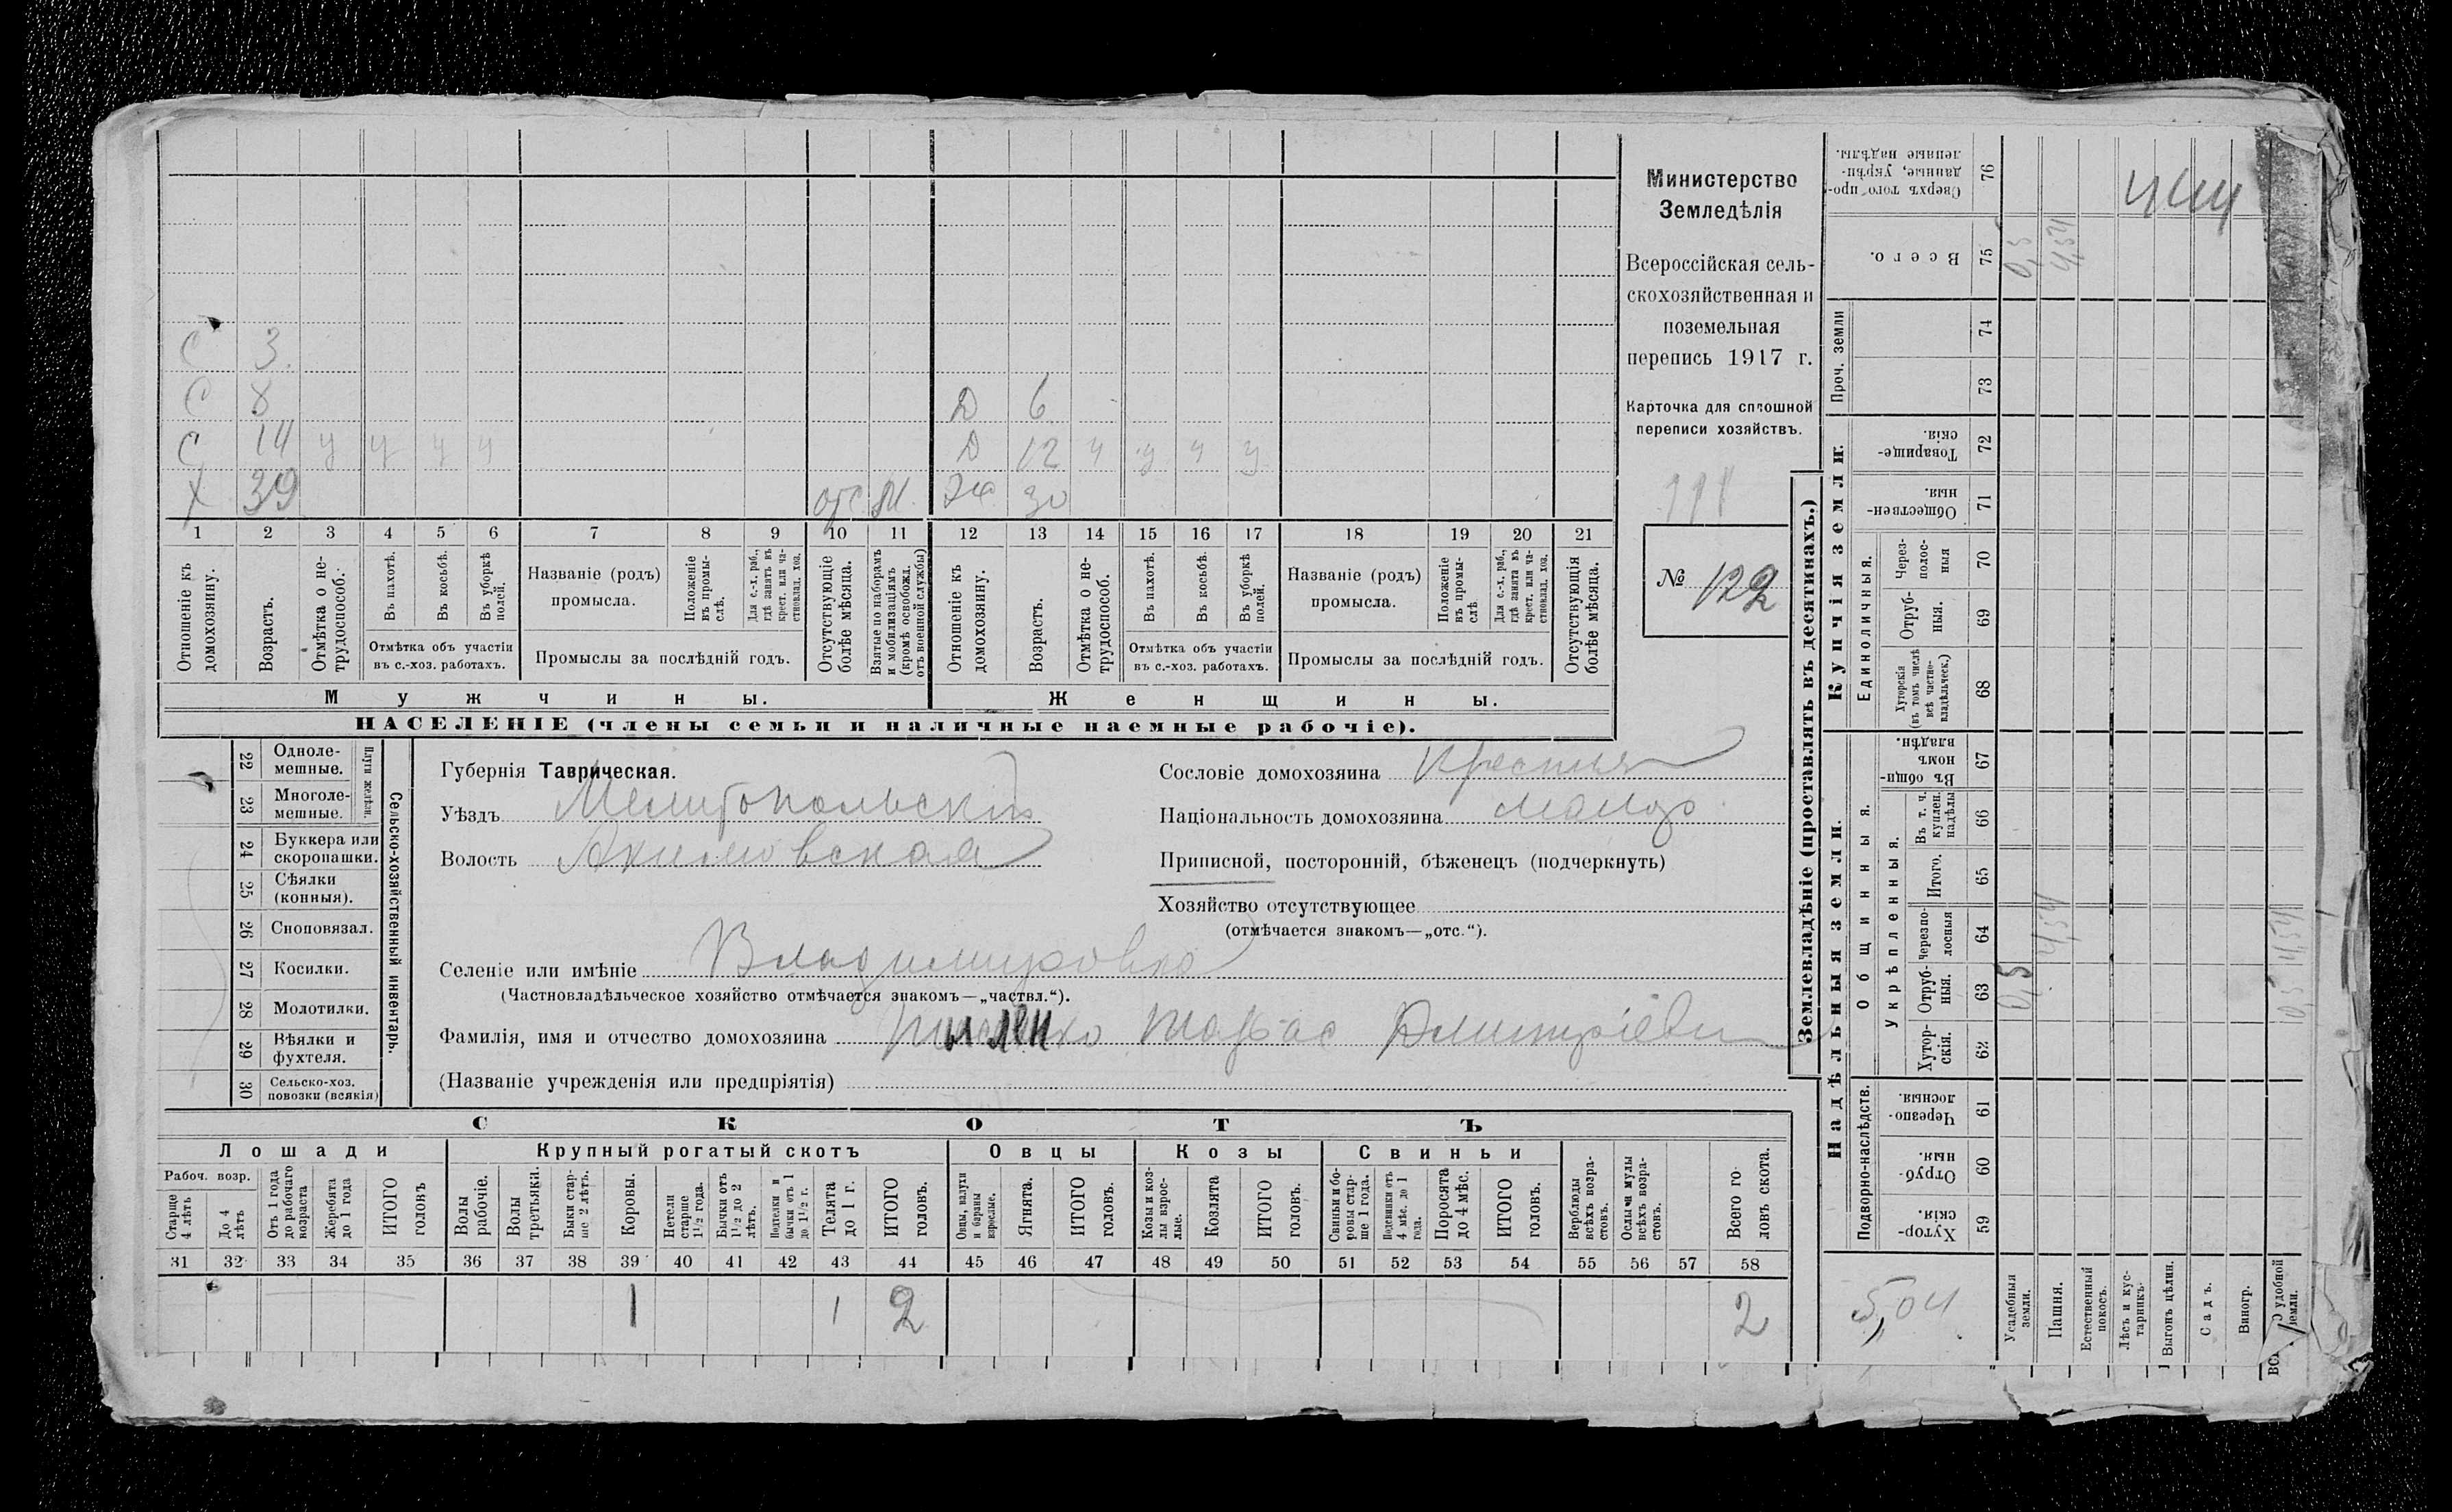 Министерство
Земледѣлія
Всероссійская сель-
скохозяйственная и
поземельная
перепись 1917 г.
Карточка для сплошной
переписи хозяйствъ.
№ 122
С 3
С 8 Д 6
С 14 у у у у Д 12 ч у ч у
Х 39 отс М. Ж 30
1 2 3 4 5 6 7 8 9 10 11 12 13 14 15 16 17 18 19 20 21
Отношеніе къ домохозяину.
Возрастъ.
Отмѣтка о не-трудоспособ.
Въ пахотѣ.
Въ косьбѣ.
Въ уборкѣ полей.
Отмѣтка объ участіи
въ с.-хоз. работахъ.
Названіе (родъ)
промысла.
Положеніе въ промы-слѣ.
Для с.-х. раб., гдѣ занятъ въ крест. или ча-стновлад. хоз.
Промыслы за послѣдній годъ.
Отсутствующіе болѣе мѣсяца.
Взятые по наборамъ и мобилизаціямъ (кромѣ освобожд. отъ военной службы)
Отношеніе къ домохозяину.
Возрастъ.
Отмѣтка о не-трудоспособ.
Въ пахотѣ.
Въ косьбѣ.
Въ уборкѣ полей.
Отмѣтка объ участіи
въ с.-хоз. работахъ.
Названіе (родъ)
промысла.
Положеніе въ промы-слѣ
Для с.-х. раб., гдѣ занята въ крест. или ча-стновлад. хоз.
Промыслы за послѣдній годъ.
Отсутствующія болѣе мѣсяца.
Мужчины. Женщины.
НАСЕЛЕНІЕ (члены семьи и наличные наемные рабочіе).
Сельско-хозяйственный инвентарь.
Плуги желѣзн.
22 Одноле-мешные.
23 Многоле-мешные.
24 Буккера или скоропашки.
25 Сѣялки (конныя).
26 Сноповязал.
27 Косилки.
28 Молотилки.
29 Вѣялки и фухтеля.
30 Сельско-хоз. повозки (всякія)
Губернія Таврическая.
Уѣздъ Мелитопольскій
Волость Акимовская
Селеніе или имѣніе Владимировка
(Частновладѣльческое хозяйство отмѣчается знакомъ—„частвл.“).
Фамилія, имя и отчество домохозяина Тарас Дмитріеви
(Названіе учрежденія или предпріятія)
Сословіе домохозяина Крестьян
Національность домохозяина малор.
Приписной, посторонній, бѣженецъ (подчеркнуть)
Хозяйство отсутствующее
(отмѣчается знакомъ—„отс.“).
СКОТЪ
Лошади Крупный рогатый скотъ Овцы Козы Свиньи
Рабоч. возр.
Старше 4 лѣтъ
До 4 лѣтъ
Отъ 1 года до рабочаго возраста
Жеребята до 1 года
ИТОГО головъ
Волы рабочіе.
Волы третьяки.
Быки стар-ше 2 лѣтъ.
Коровы.
Нетели старше 1 1/2 года.
Бычки отъ 1 1/2 до 2 лѣтъ.
Подтелки и бычки отъ 1 до 1 1/2 г.
Телята до 1 г.
ИТОГО головъ.
Овцы, валухи и бараны взрослые.
Ягнята.
ИТОГО головъ.
Козы и коз-лы взрос-лые.
Козлята
ИТОГО головъ.
Свиньи и бо-ровы стар-ше 1 года.
Подсвинки отъ 4 мѣс. до 1 года.
Поросята до 4 мѣс.
ИТОГО головъ.
Верблюды всѣхъ возра-стовъ.
Ослы и мулы всѣхъ возра-стовъ.
Всего го-ловъ скота.
31 32 33 34 35 36 37 38 39 40 41 42 43 44 45 46 47 48 49 50 51 52 53 54 55 56 57 58
1 1 2 2
Землевладѣніе (проставлять въ десятинахъ.)
Надѣльныя земли. Купчія земли.
Подворно-наслѣдств.
Общинныя.
Укрѣпленныя.
Единоличныя.
Проч. земли
59 Хутор-скія.
60 Отруб-ныя.
61 Черезпо-лосныя.
62 Хутор-скія.
63 Отруб-ныя. 0,5
64 Черезпо-лосныя 4,54
65 Итого.
66 Въ т. ч. куплен. надѣлы
67 Въ общин-номъ владѣн.
68 Хуторскія (въ томъ числѣ всѣ частно-владѣльческ.)
69 Отруб-ныя.
70 Через-полос-ныя
71 Обществен-ныя.
72 Товарище-скія.
73
74
75 Всего. 0,5 4,54
76 Сверхъ того про-данные, укрѣп-ленные надѣлы.
5,04
Усадебныя земли.
Пашня.
Естественный покосъ.
Лѣсъ и кус-тарникъ.
Выгонъ цѣлин.
Садъ.
Виногр.
удобной земли.